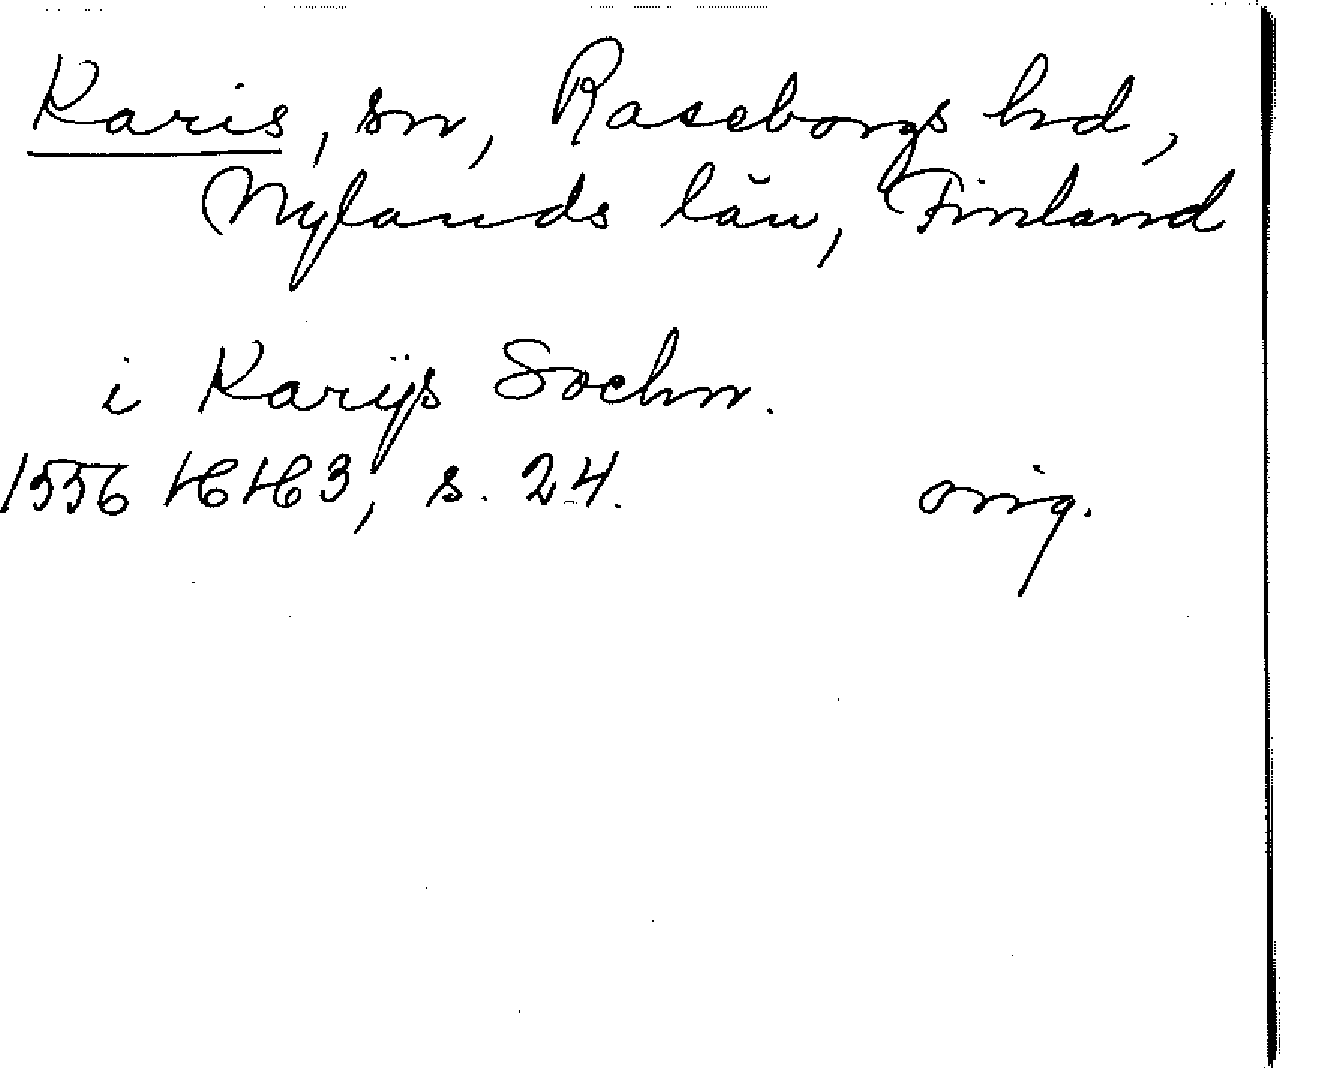 Karis, sn, Raseborgs hd,
Nylands län, Finland
i Karijs Sochn.
1556 HH3, s. 24. orig.